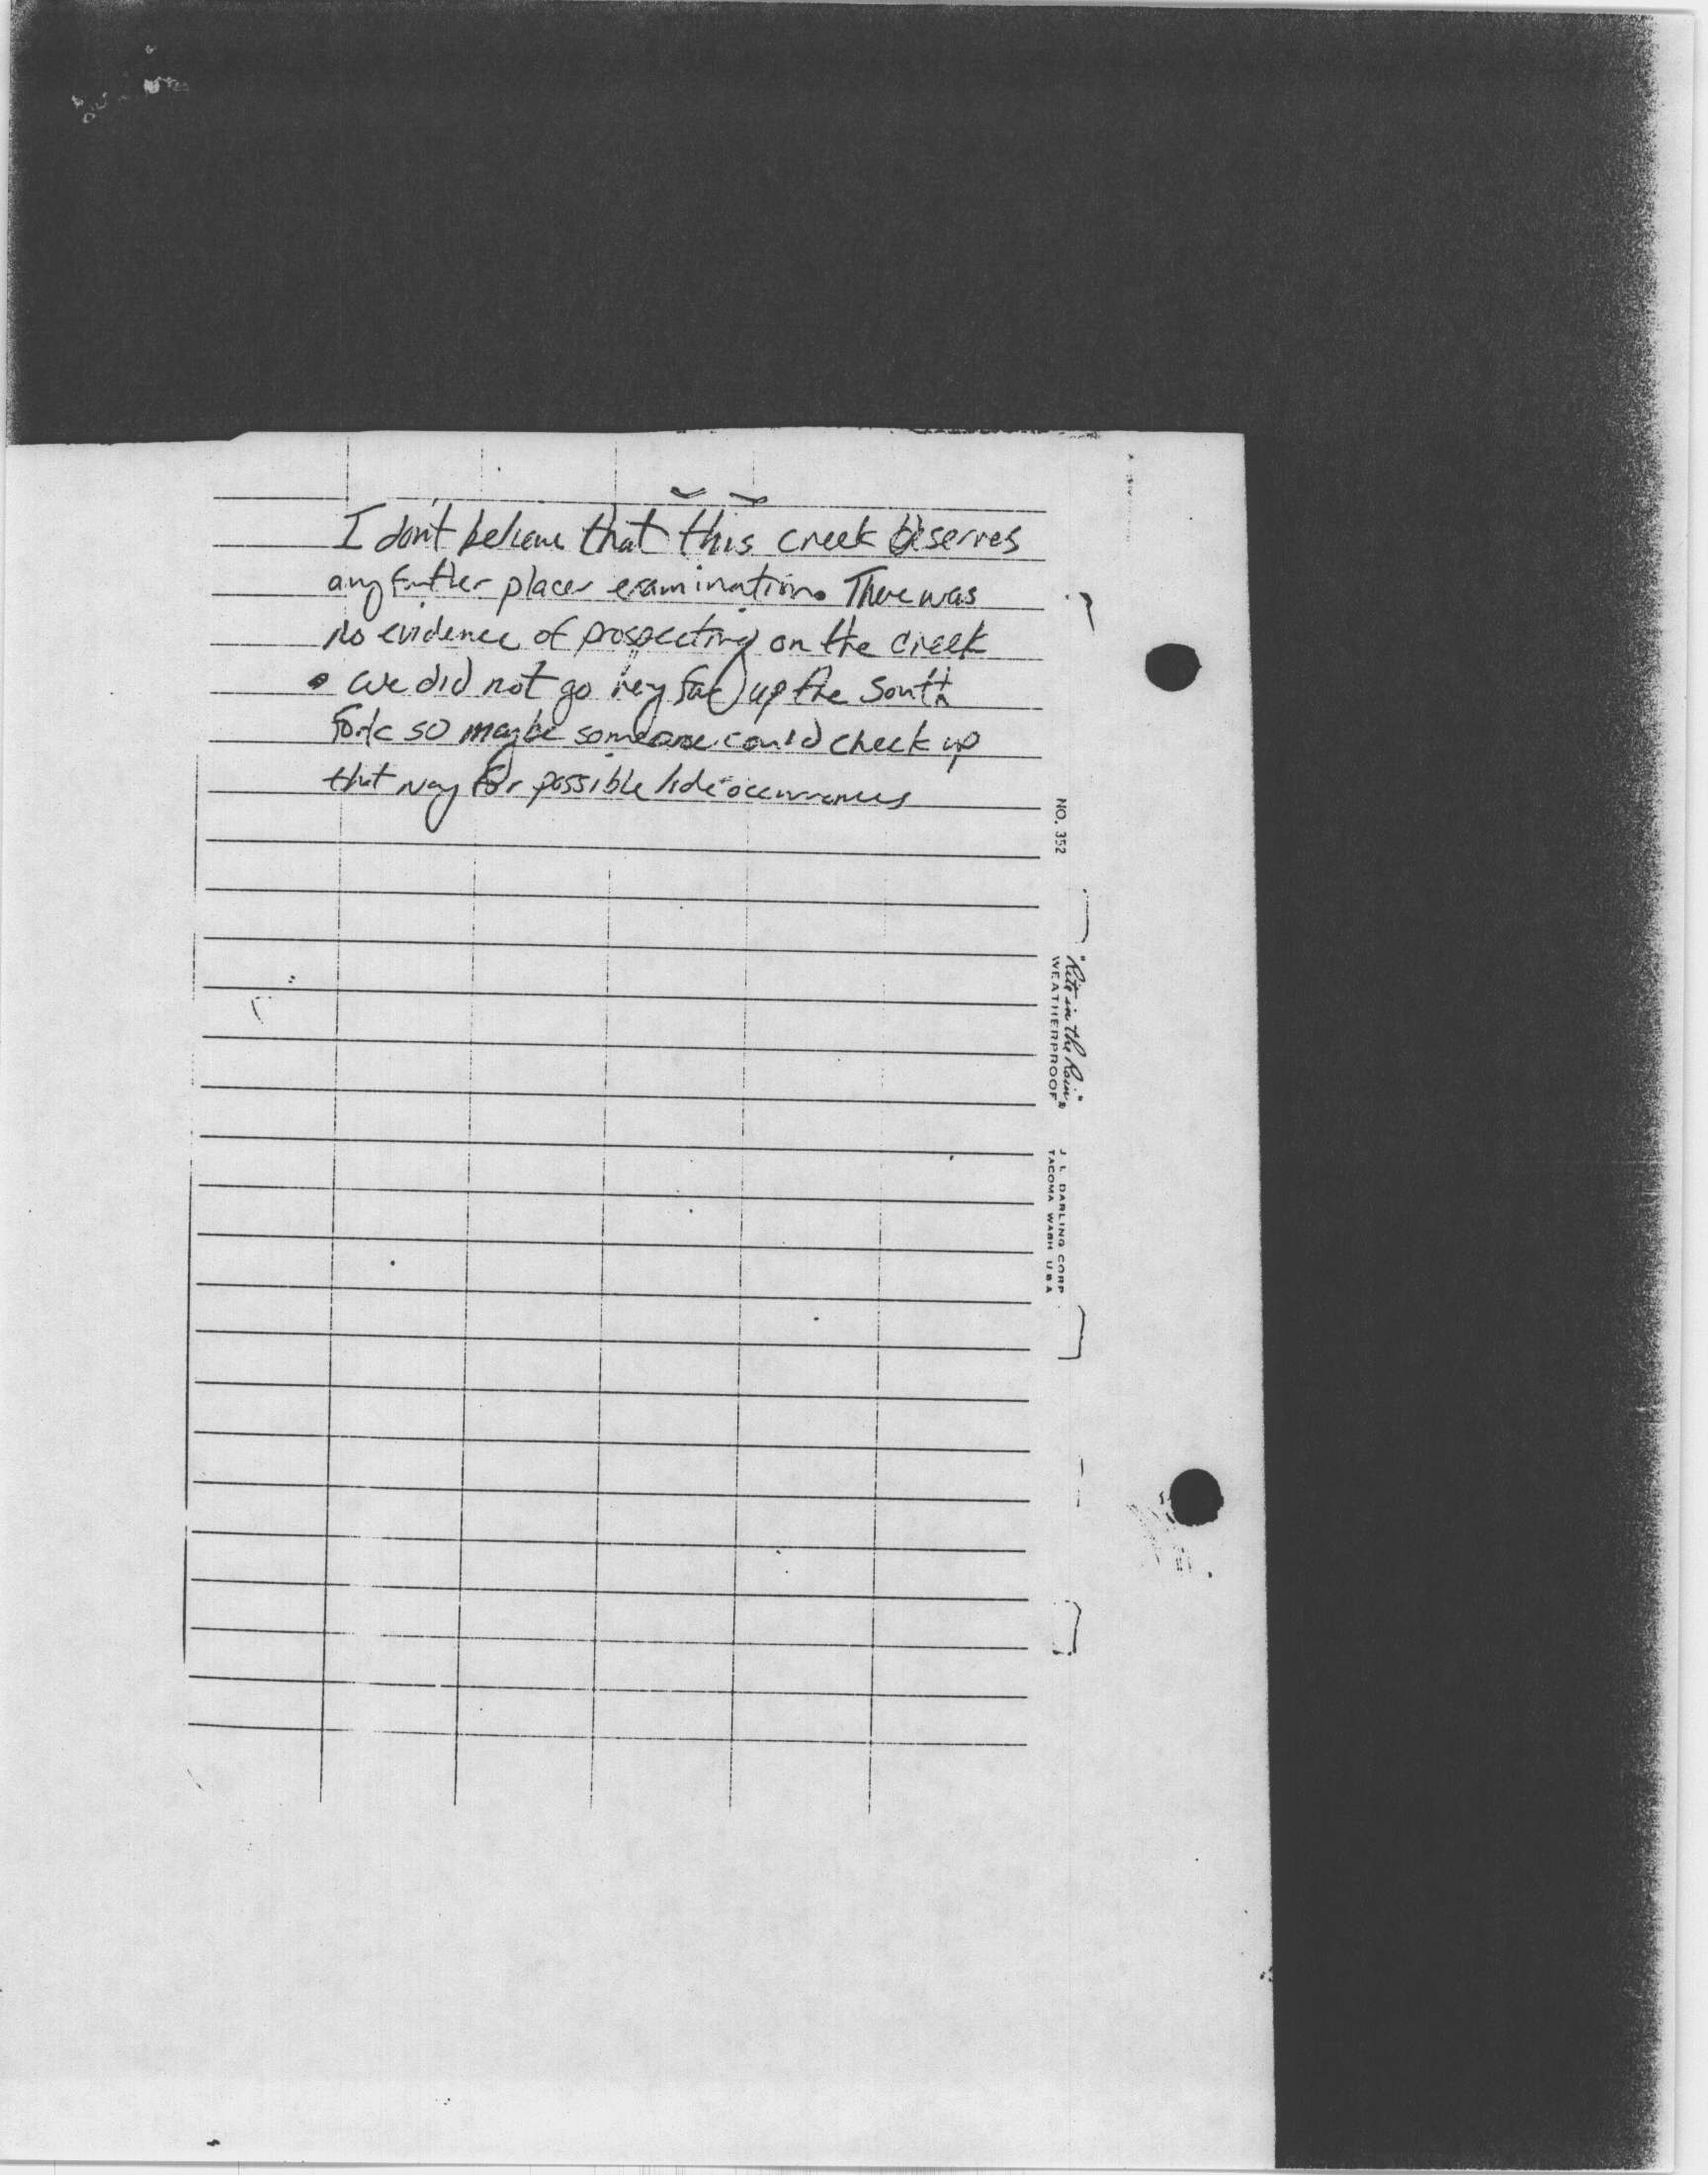 I don't believe that this creek deserves
any further placer examination. There was
no evidence of prospecting on the creek
• we did not go very far up the South
Fork so maybe someone could check up
that way for possible lode occurrences
NO. 352
"Rite in the Rain"
WEATHERPROOF
J. L. DARLING CORP
TACOMA WASH U.S.A